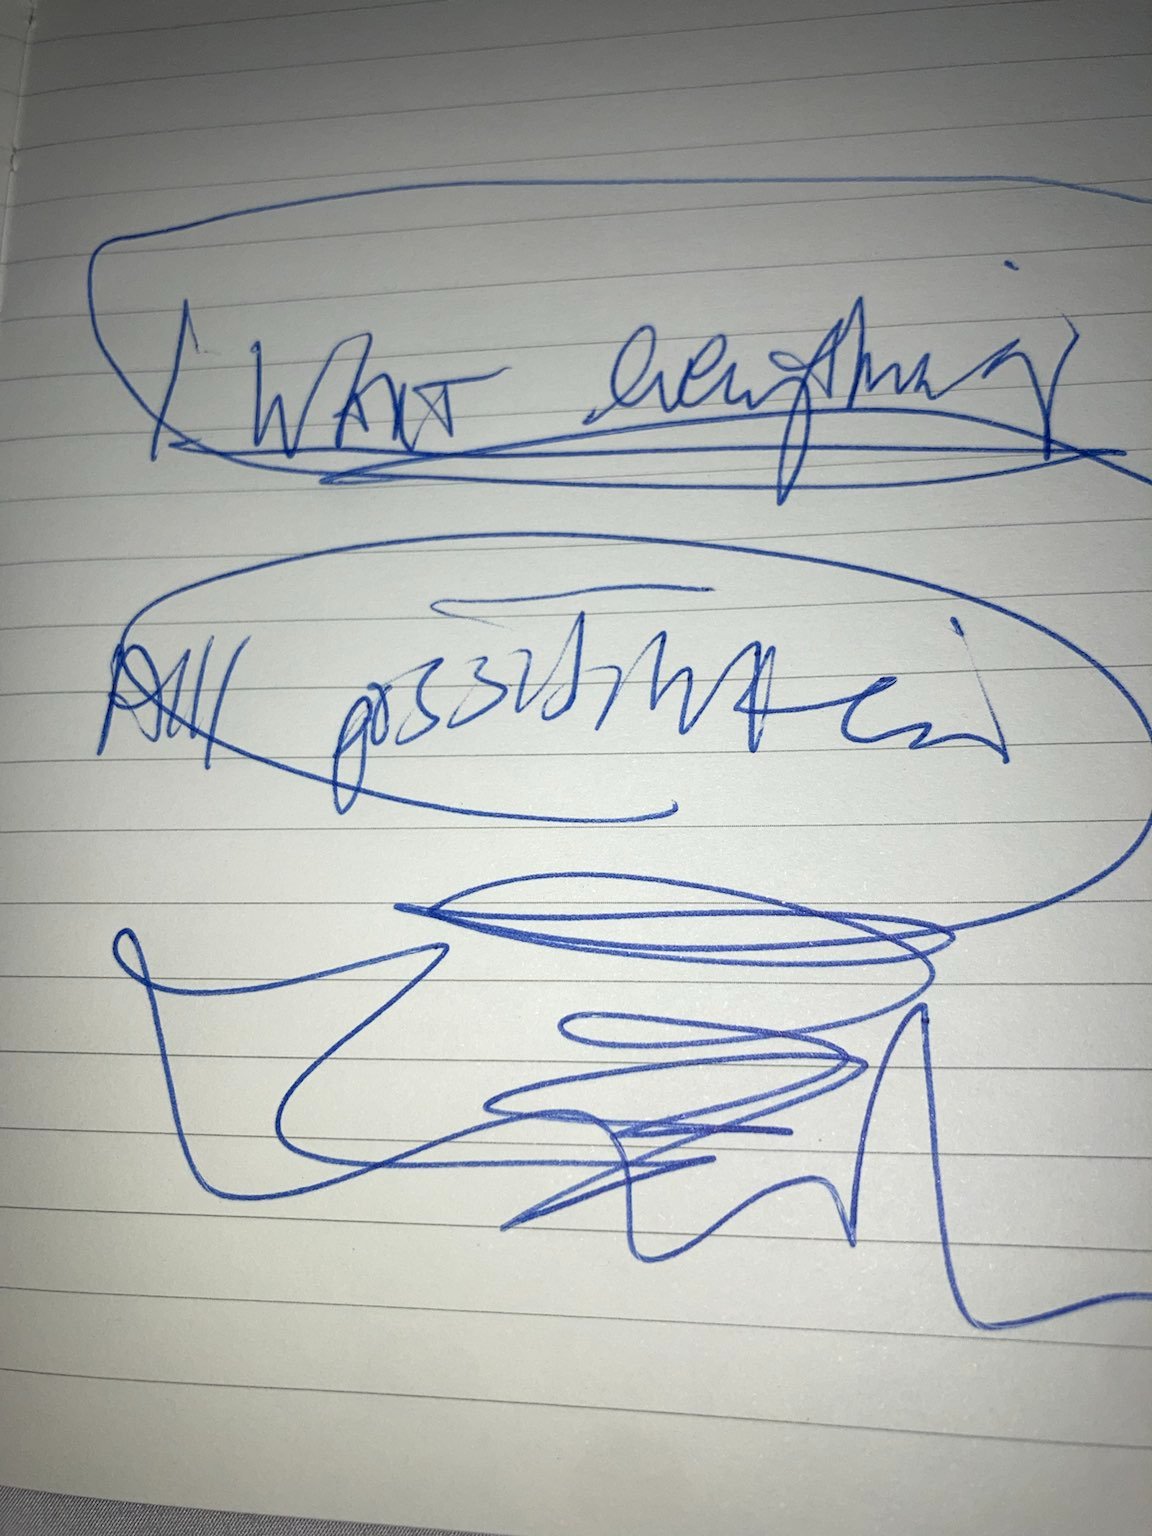 I WANT everything
All possibilities